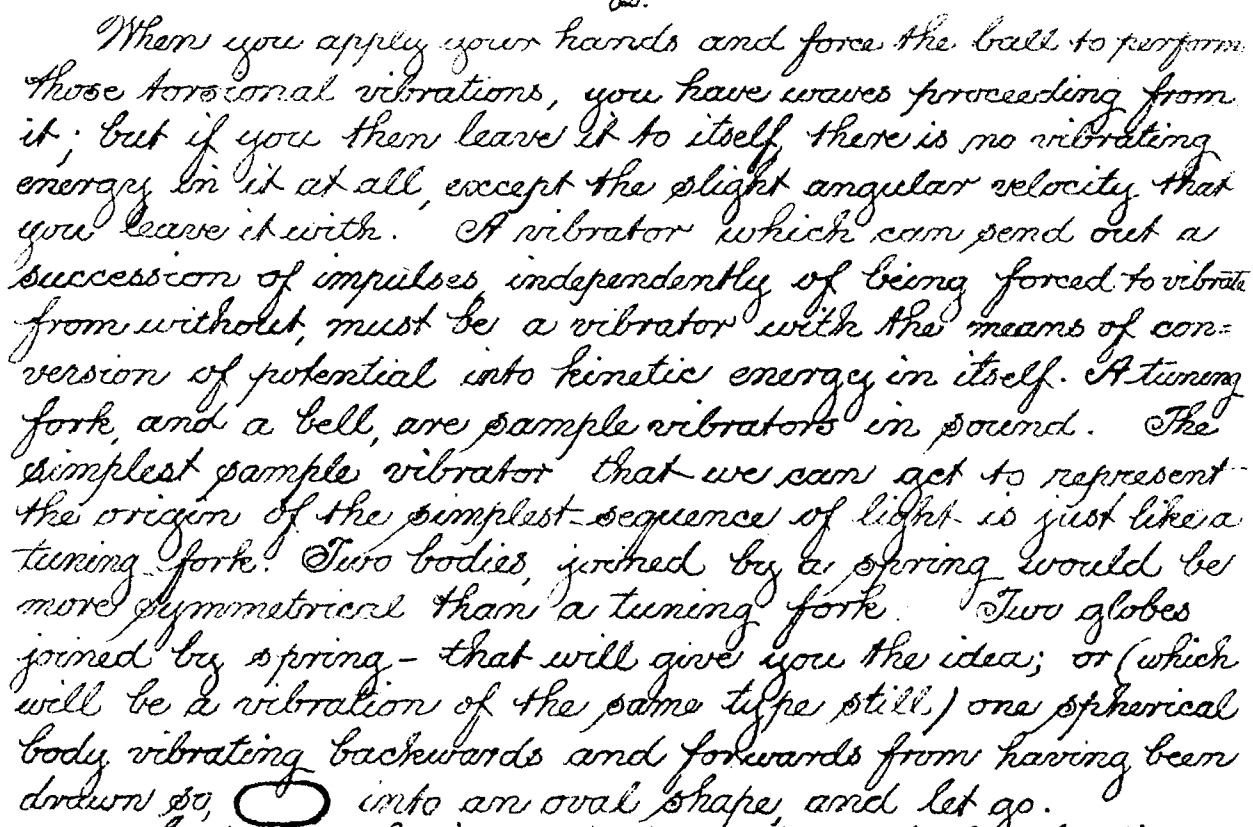 When you apply your hands and force the ball to perform
those torsional vibrations, you have waves proceeding from
it; but if you then leave it to itself, there is no vibrating
energy in it at all, except the slight angular velocity that
you leave it with. A vibrator which can send out a
succession of impulses, independently of being forced to vibrate
from without, must be a vibrator with the means of con=
version of potential into kinetic energy in itself. A tuning
fork, and a bell, are sample vibrators in sound. The
simplest sample vibrator that we can get to represent
the origin of the simplest sequence of light is just like a
tuning fork. Two bodies, joined by a spring would be
more symmetrical than a tuning fork. Two globes
joined by spring – that will give you the idea; or (which
will be a vibration of the same type still) one spherical
body vibrating backwards and forwards from having been
drawn so, into an oval shape, and let go.